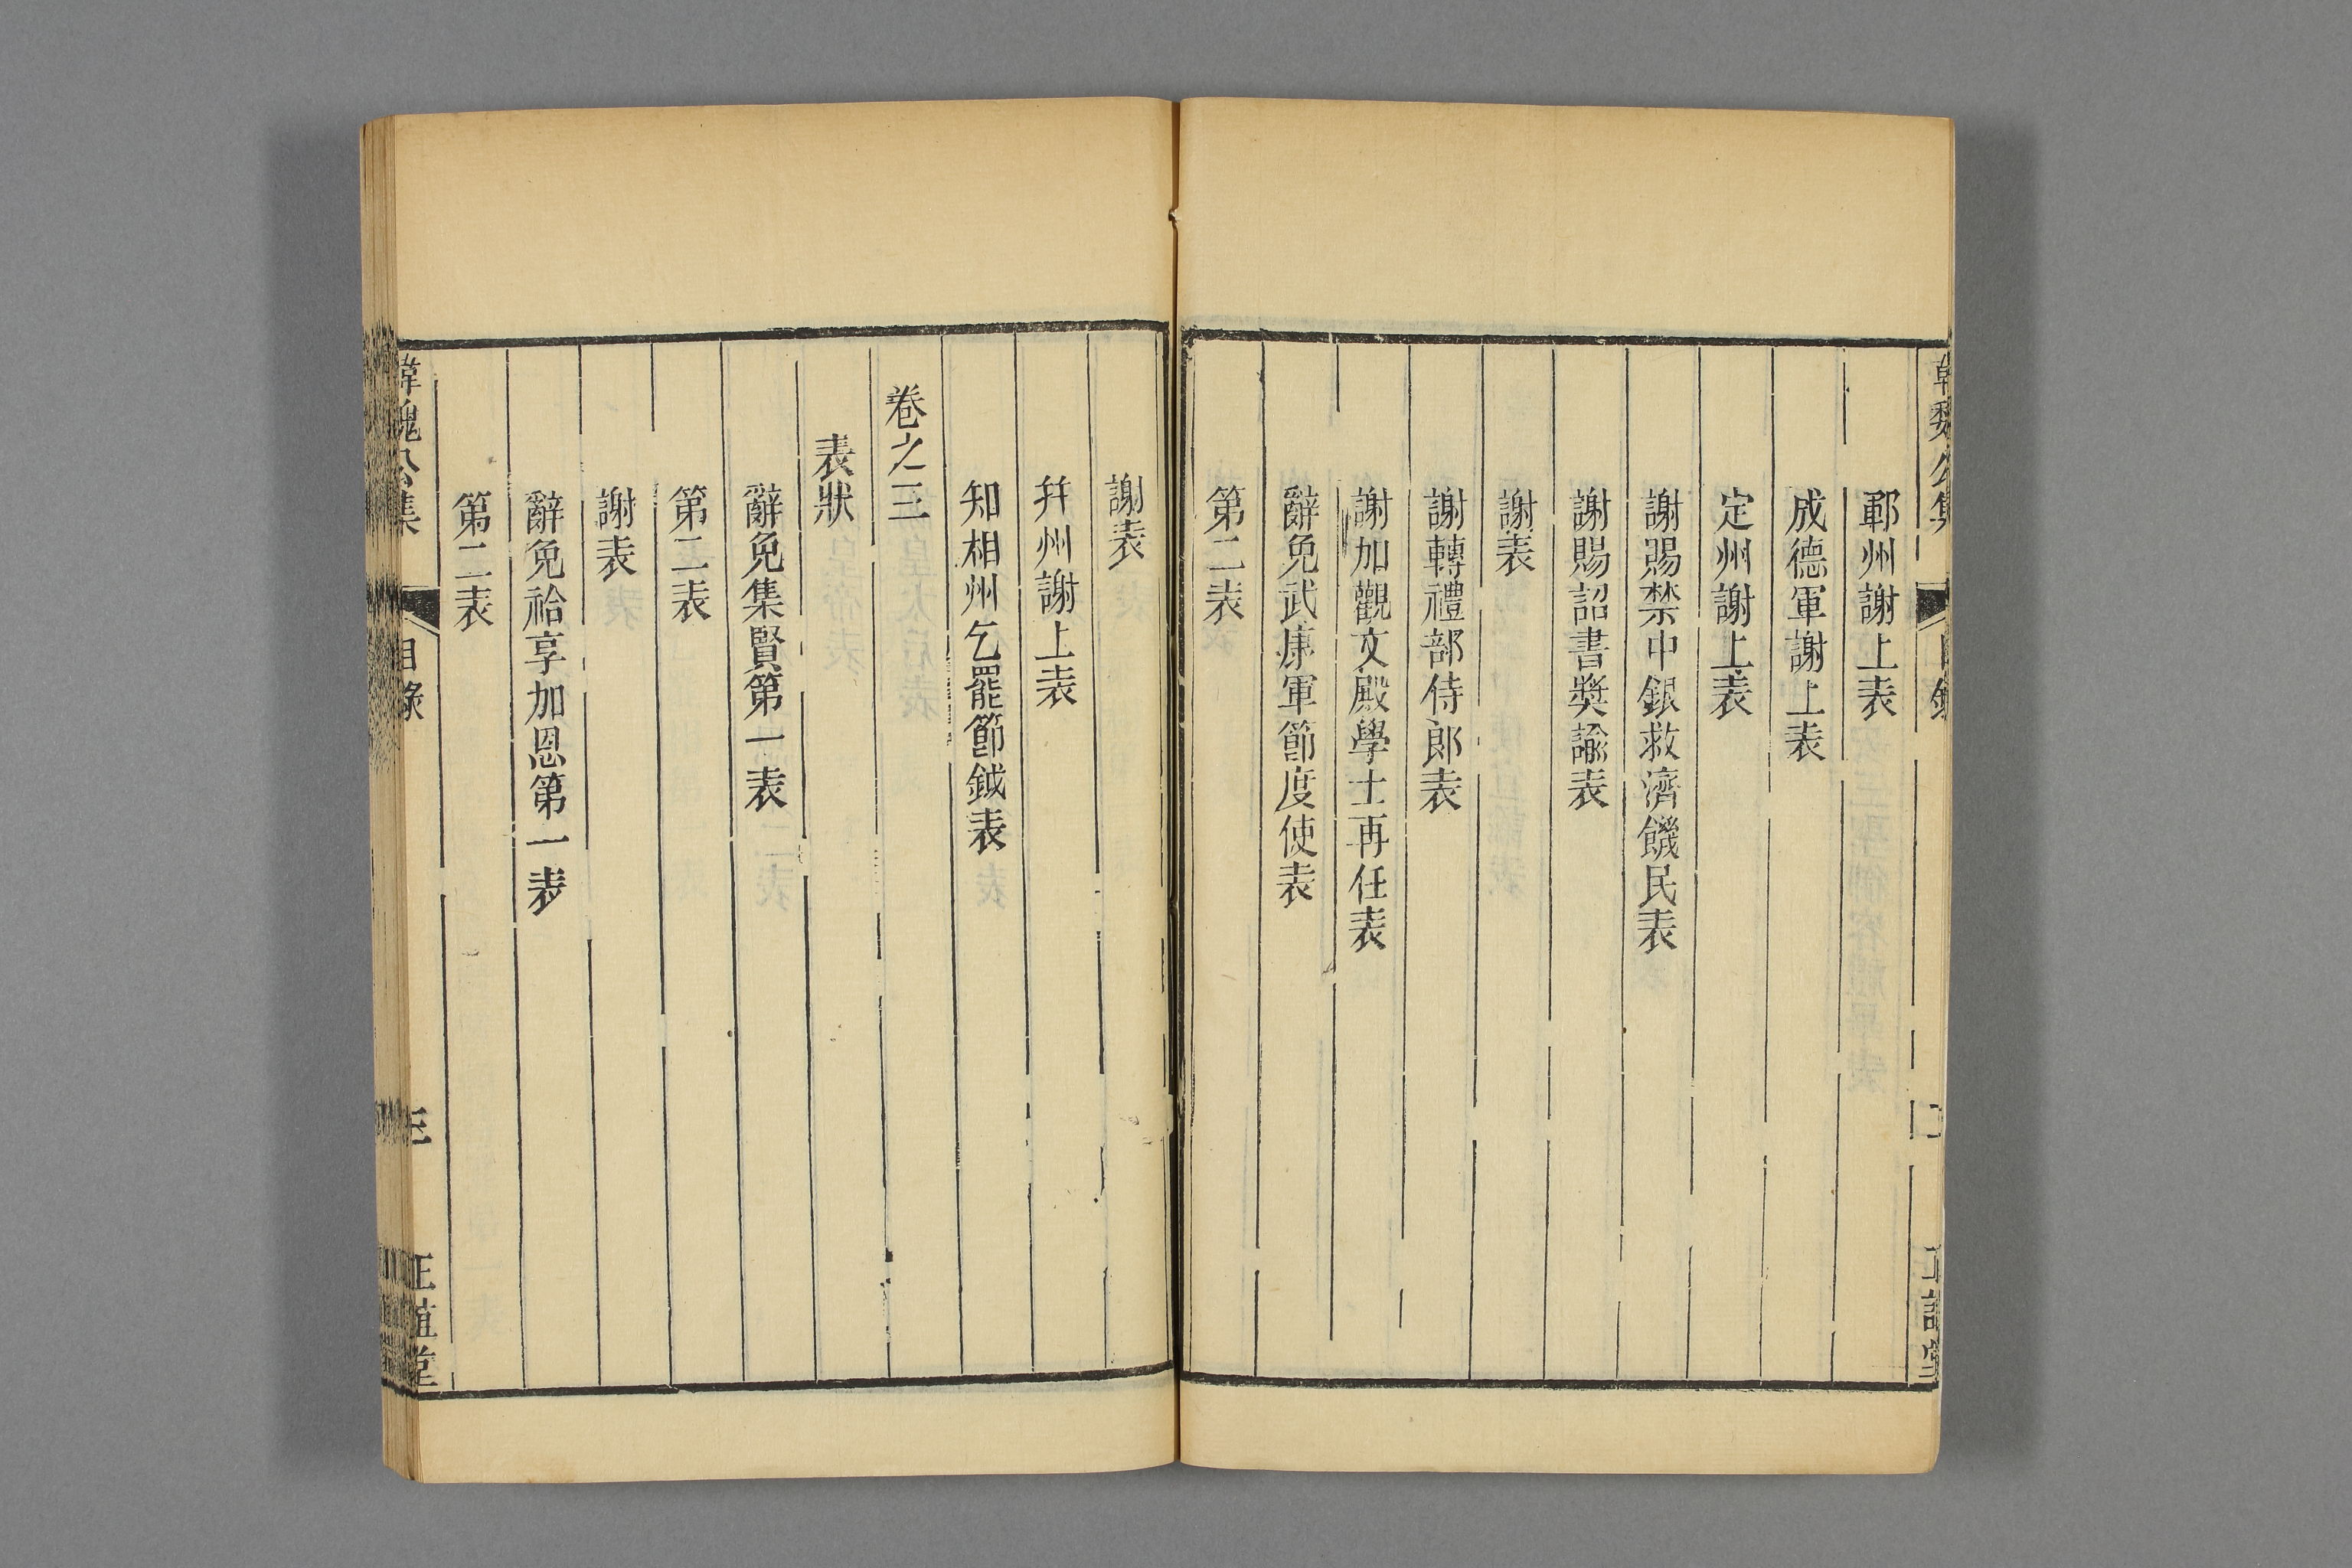 鄆州謝上表
成德軍謝上表
定州謝上表
謝賜禁中銀救濟饑民表
謝賜詔書奬諭表
謝表
謝轉禮部侍郎表
謝加觀文殿學士再任表
辭免武康軍節度使表
第二表
謝表
幷州謝上表
知相州乞罷節鉞表
卷之三
表狀
辭免集賢第一表
第二表
謝表
辭免祫享加恩第一表
第二表
韓魏公集
目錄
三
正誼堂